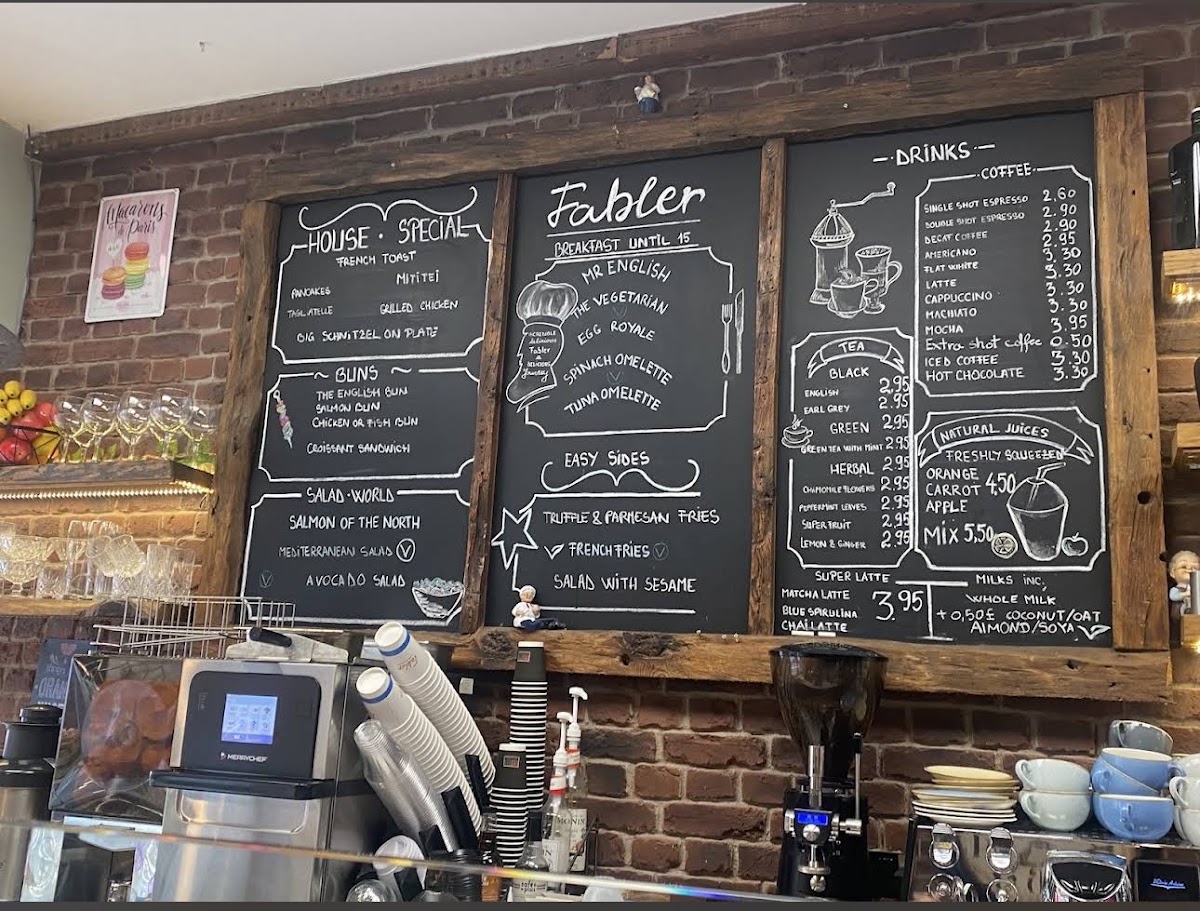 Macarons
de Paris
HOUSE · SPECIAL
FRENCH TOAST
MITITEI
PANCAKES
TAGLIATELLE
GRILLED CHICKEN
BIG SCHNITZEL ON PLATE
~ BUNS ~
THE ENGLISH BUN
SALMON BUN
CHICKEN OR FISH BUN
CROISSANT SANDWICH
SALAD · WORLD
SALMON OF THE NORTH
MEDITERRANEAN SALAD V
V AVOCADO SALAD
Fabler
BREAKFAST UNTIL 15
MR ENGLISH
THE VEGETARIAN
V
EGG ROYALE
SPINACH OMELETTE
V
TUNA OMELETTE
INCREDIBLE
delicious
Fabler
&
DELICIOUS
Journey
EASY SIDES
TRUFFLE & PARMESAN FRIES
FRENCH FRIES V
SALAD WITH SESAME
– · DRINKS · –
· COFFEE ·
SINGLE SHOT ESPRESSO 2,60
DOUBLE SHOT ESPRESSO 2.90
DECAT COFFEE 2.90
AMERICANO 2.95
FLAT WHITE 3,30
LATTE 3.30
CAPPUCCINO 3.30
MACHIATO 3.30
MOCHA 3.95
Extra shot coffee 0.50
ICED COFFEE 3.30
HOT CHOCOLATE 3.30
TEA
BLACK
ENGLISH 2.95
EARL GREY 2.95
GREEN
GREEN TEA WITH MINT 2.95
HERBAL 2.95
CHAMOMILE FLOWERS 2.95
PEPPERMINT LEAVES 2.95
SUPER FRUIT 2.95
LEMON & GINGER 2.95
NATURAL JUICES
FRESHLY SQUEEZED
ORANGE
CARROT 4,50
APPLE
MIX 5,50
SUPER LATTE
MATCHA LATTE
BLUE SPIRULINA 3.95
CHAI LATTE
MILKS INC,
WHOLE MILK
+0,50£ COCONUT/OAT
ALMOND/SOYA
MERRYCHEF
MONIN